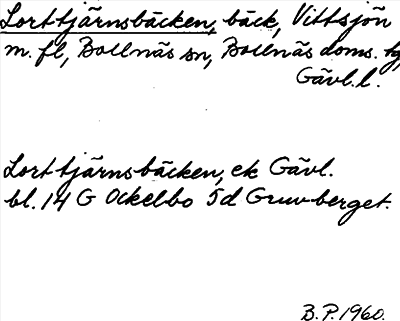 Lorttjärnsbäcken, bäck, Vittsjön
m. fl, Bollnäs sn, Bollnäs doms. hg,
Gävl. l.
Lorttjärnsbäcken, ek Gävl.
bl. 14 G Ockelbo 5d Gruvberget.
B.P. 1960.